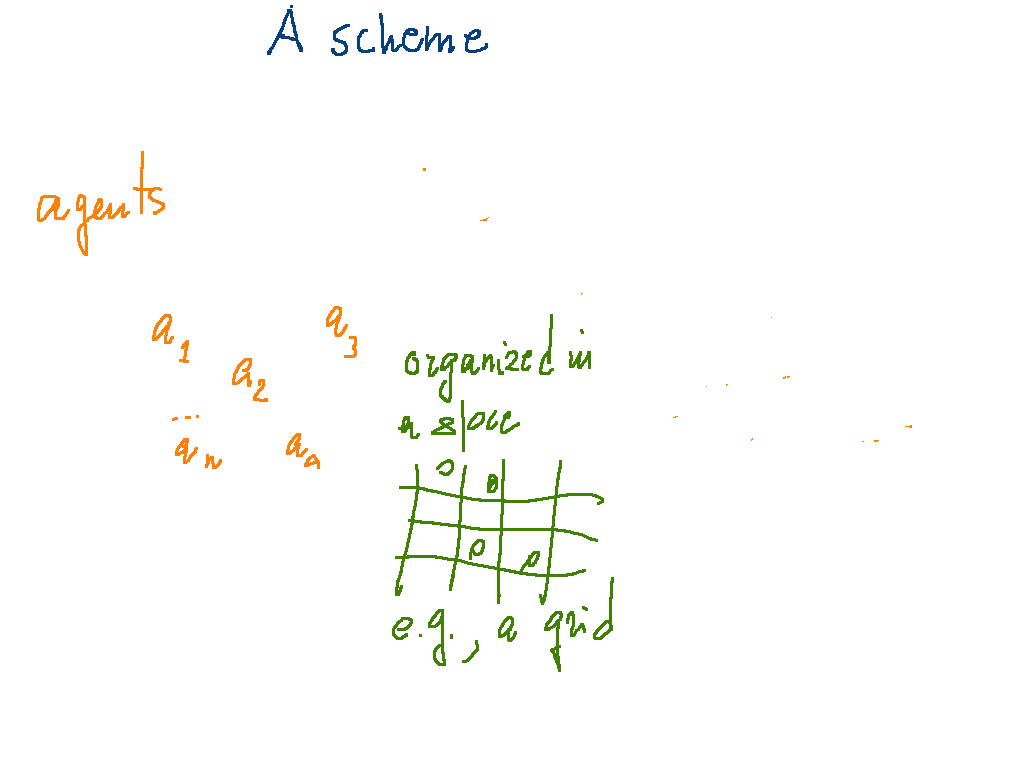 A scheme
agents
a1
a2
a3
...
an
organized in
a space
e.g., a grid